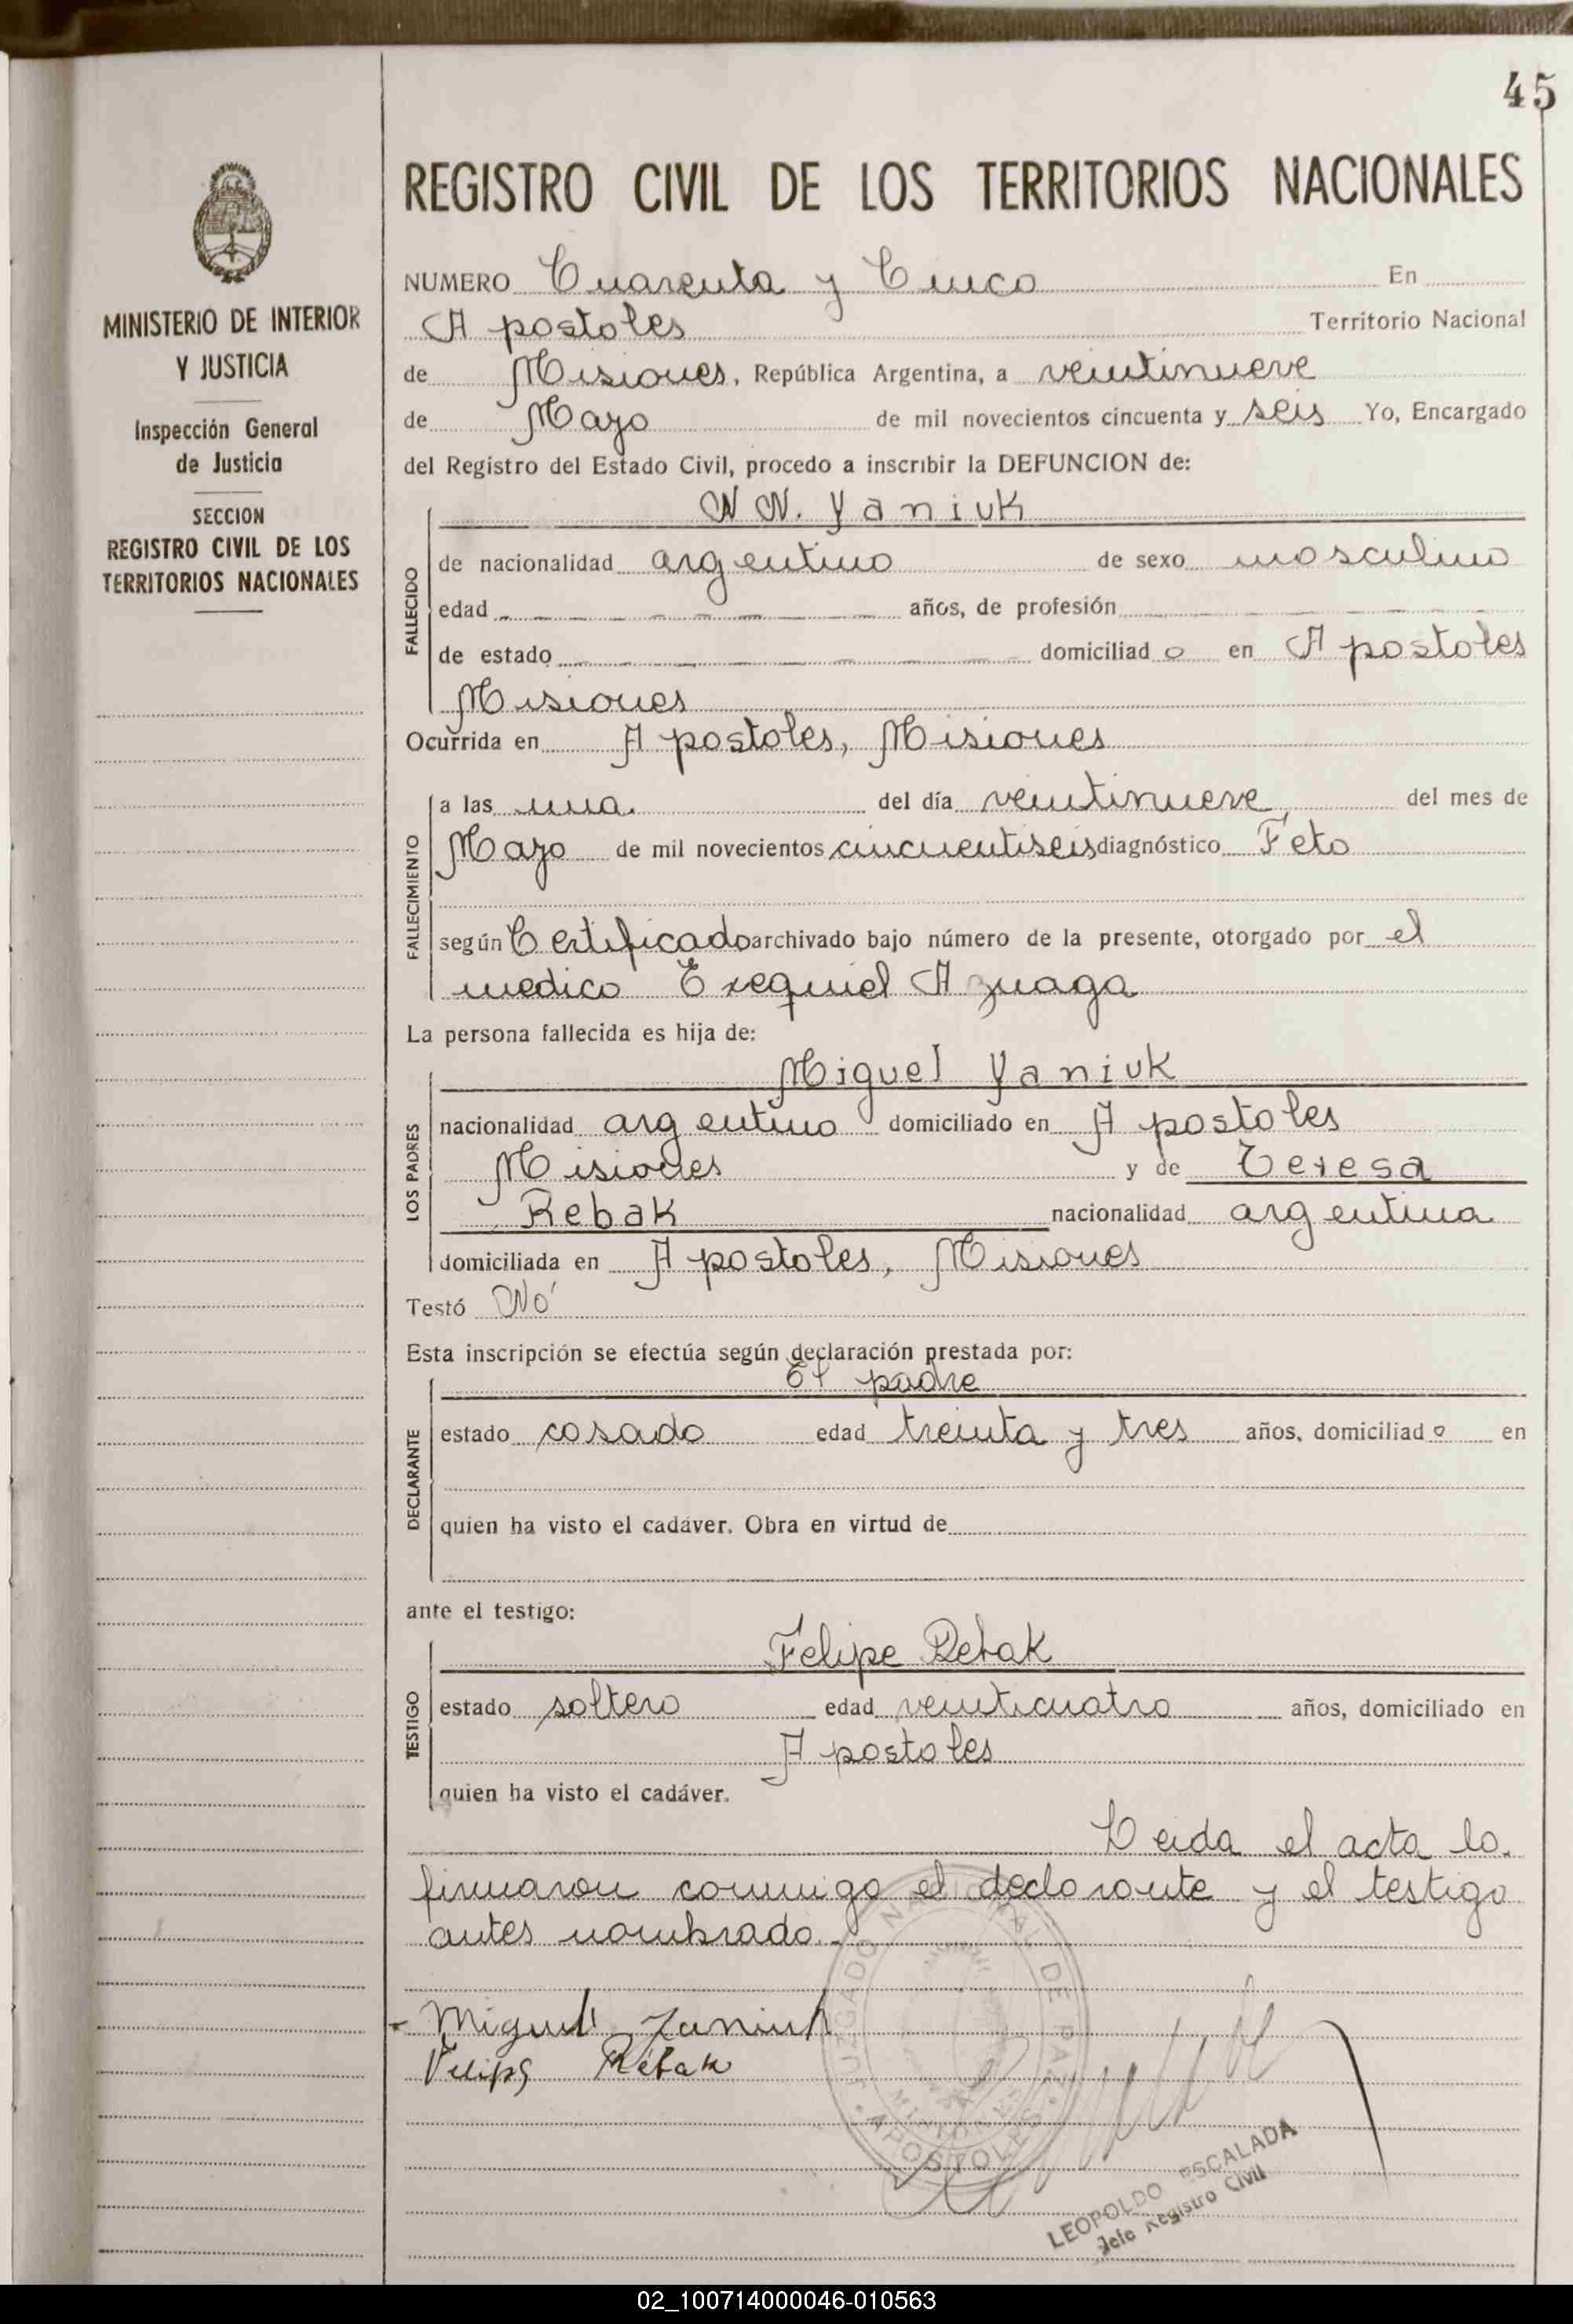 45
REGISTRO CIVIL DE LOS TERRITORIOS NACIONALES
MINISTERIO DE INTERIOR
Y JUSTICIA
Inspección General
de Justicia
SECCION
REGISTRO CIVIL DE LOS
TERRITORIOS NACIONALES
NUMERO Cuarenta y Cinco En
Apostoles Territorio Nacional
de Misiones, República Argentina, a veintinueve
de Mayo de mil novecientos cincuenta y seis Yo, Encargado
del Registro del Estado Civil, procedo a inscribir la DEFUNCION de:
N N. Yaniuk
FALLECIDO
de nacionalidad argentino de sexo masculino
edad años, de profesión
de estado domiciliado en Apostoles
Misiones
Ocurrida en Apostoles, Misiones
FALLECIMIENTO
a las una. del día veintinueve del mes de
Mayo de mil novecientos cincuentiseis diagnóstico Feto
según Certificado archivado bajo número de la presente, otorgado por el
medico Exequiel Azuaga
La persona fallecida es hija de:
Miguel Yaniuk
LOS PADRES
nacionalidad argentino domiciliado en Apostoles
Misiones y de Teresa
Rebak nacionalidad argentina
domiciliada en Apostoles, Misiones
Testó Nó
Esta inscripción se efectúa según declaración prestada por:
El padre
DECLARANTE
estado casado edad treinta y tres años, domiciliado en
quien ha visto el cadáver. Obra en virtud de
ante el testigo:
Felipe Rebak
TESTIGO
estado soltero edad veinticuatro años, domiciliado en
Apostoles
quien ha visto el cadáver.
Leida el acta lo
firmaron conmigo el declarante y el testigo
antes nombrado.
Miguel Yaniuk
Felipe Rebak
JUZGADO NACIONAL DE PAZ
MISIONES
APOSTOLES
LEOPOLDO ESCALADA
Jefe Registro Civil
02_100714000046-010563